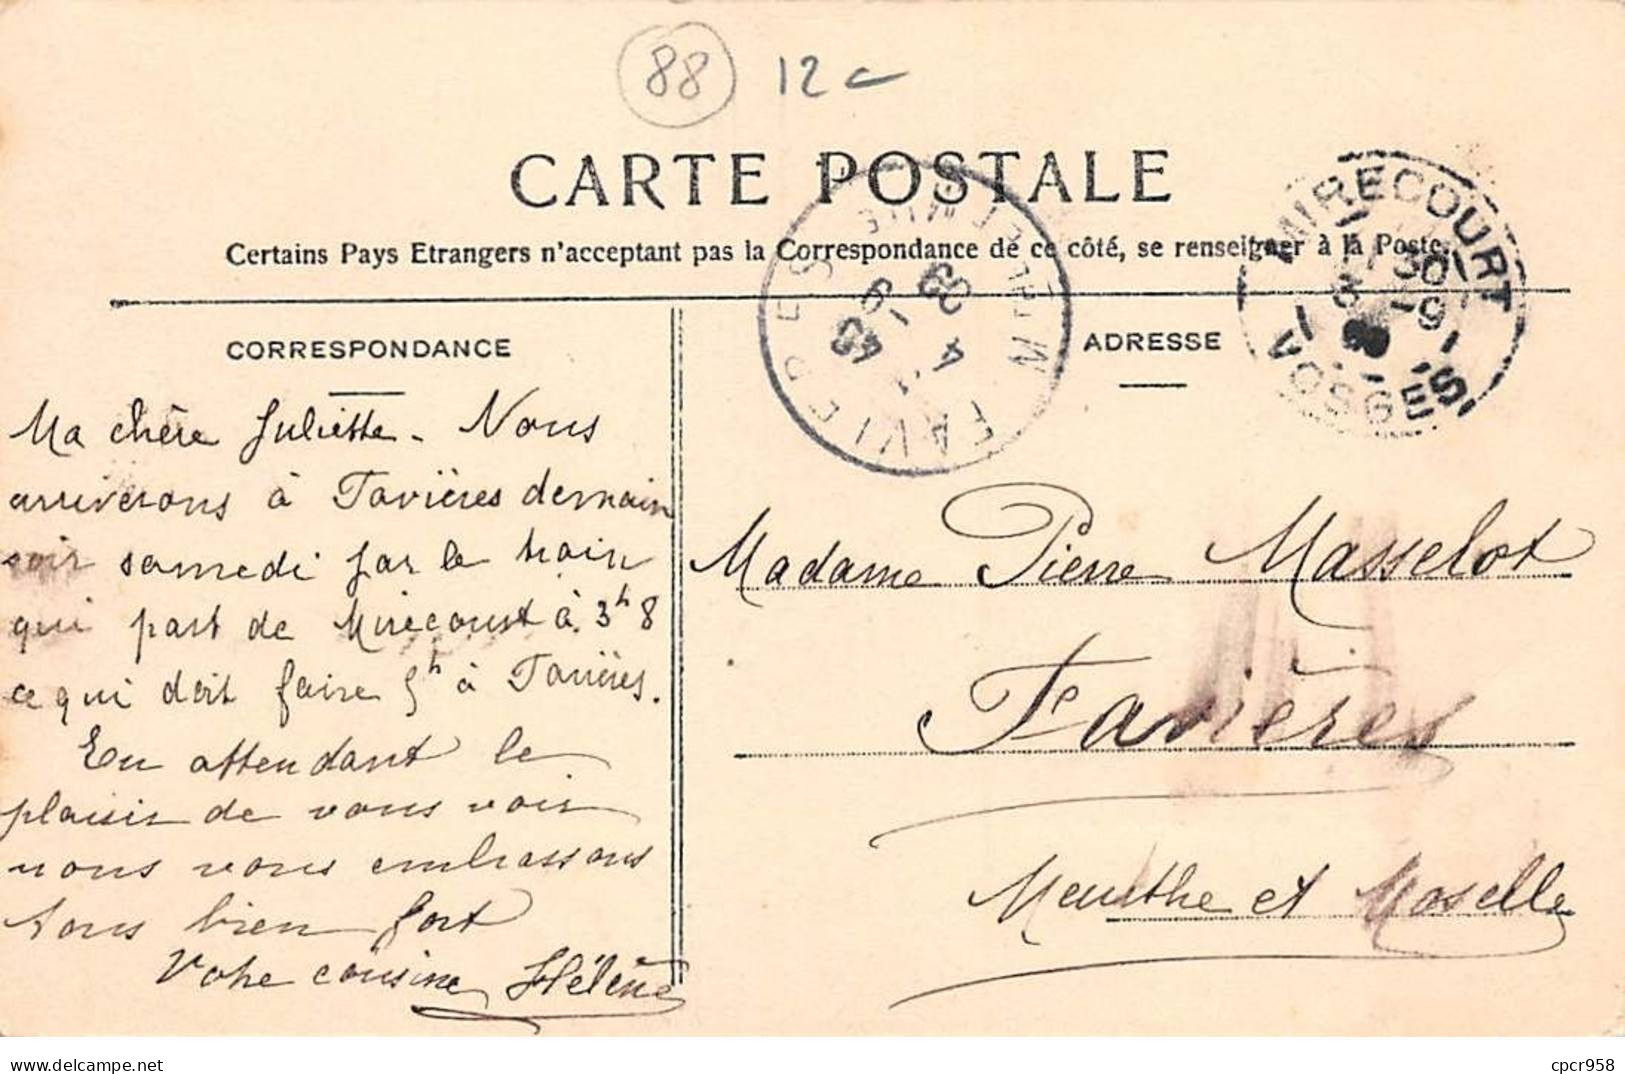 88 12
CARTE POSTALE
Certains Pays Etrangers n'acceptant pas la Correspondance de ce côté, se renseigner à la Poste.
MIRECOURT
VOSGES
FAVIERES
CORRESPONDANCE
Ma chère Juliette. Nous
arriverons à Favières demain
soir samedi par le train
qui part de Mirecourt à 3h 8
ce qui doit faire 5h à Favières.
En attendant le
plaisir de vous voir
nous vous embrassons
tous bien fort
Votre cousine Hélène
ADRESSE
Madame Pierre Masselot
Favières
Meurthe et Moselle
delcampe.net
cpcr958